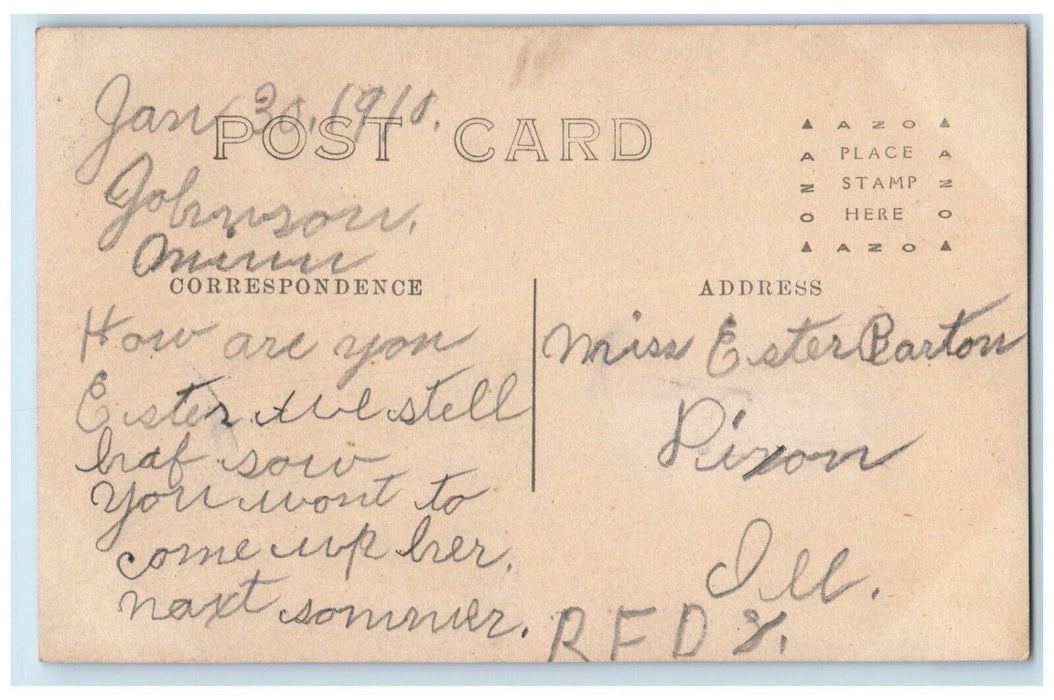 Jan 30, 1910.
POST CARD
Johnson,
Minn
CORRESPONDENCE
How are you
Ester. we stell
haf sow
You wont to
come up her.
naxt sommer.
▲ AZO ▲
AZO PLACE AZO
STAMP
HERE
▲ AZO ▲
ADDRESS
Miss Ester Barton
Dixon
Ill.
R F D